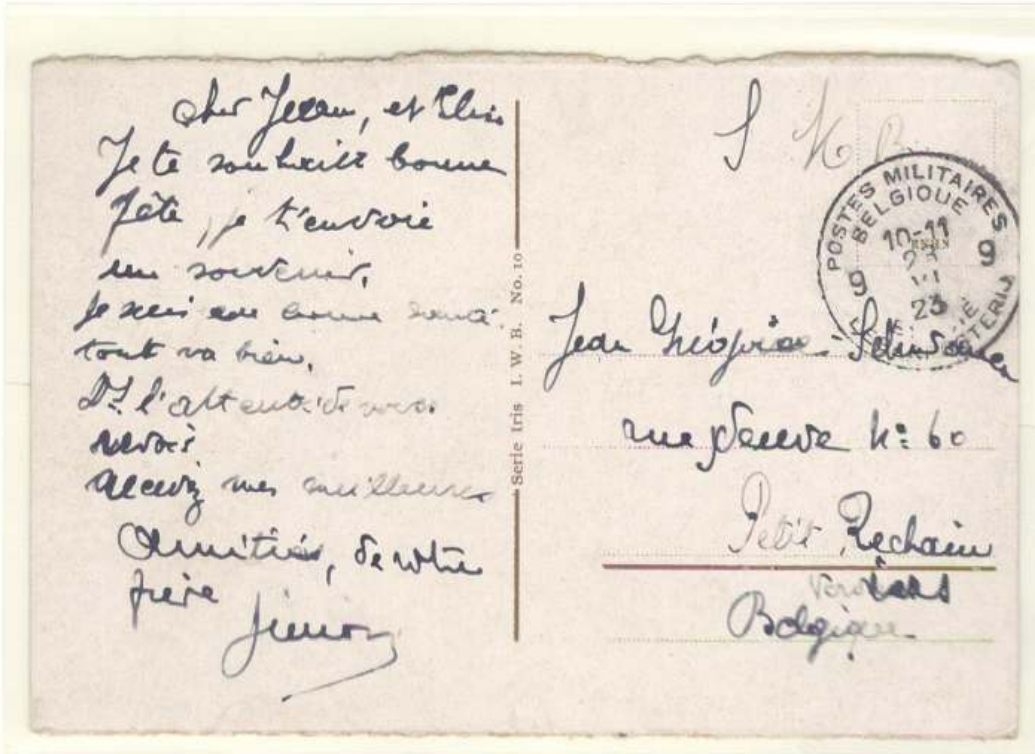 Cher Jean, et Elise
Je te souhaite bonne
fête, je t'envoie
un souvenir,
je suis en bonne santé.
tout va bien.
Dt l'attente de vous
revoir
recevez mes meilleures
Amitiés, de votre
frère
Simon
Serie Iris I. W. B. No. 10
S M B
POSTES MILITAIRES
BELGIQUE
10-11
VI
23
9 9
LEGERPOSTERIJ
Jean
rue Neuve N: 60
Petit Rechain
Verviers
Belgique